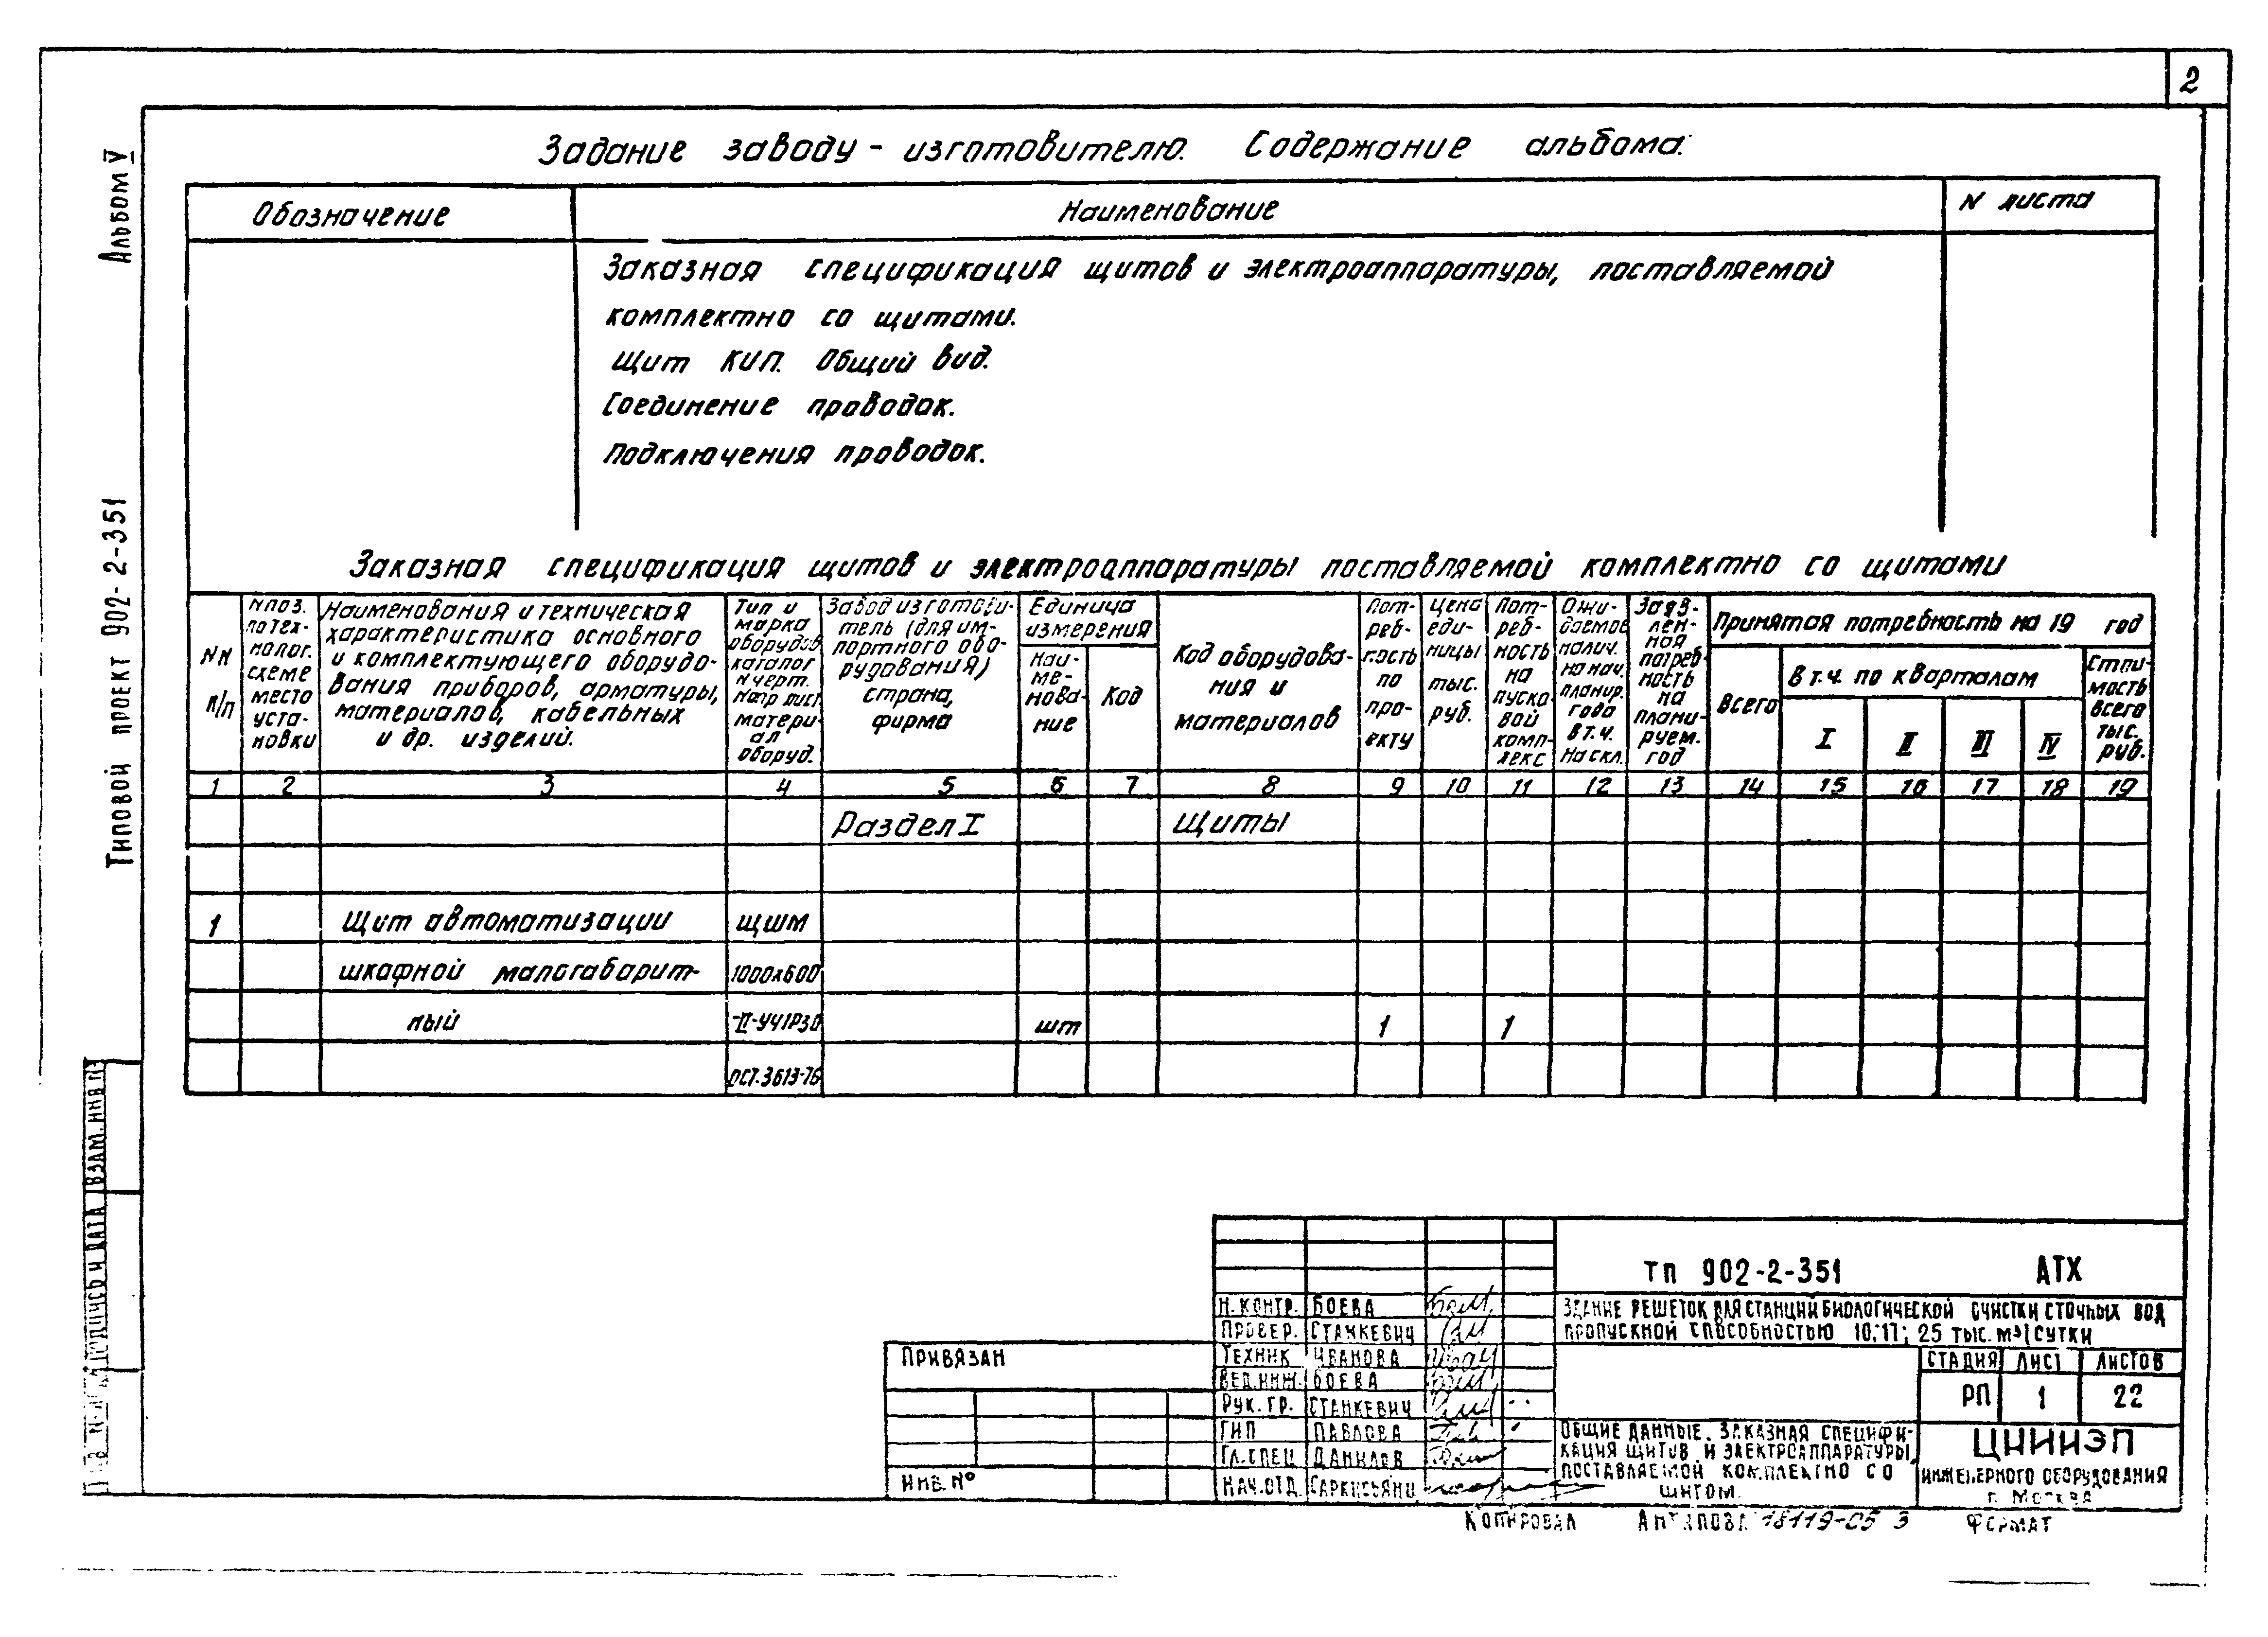 2
Альбом V
Типовой проект 902-2-351
Задание заводу - изготовителю. Содержание альбома.
Обозначение
Наименование
N листа
Заказная спецификация щитов и электроаппаратуры, поставляемой
комплектно со щитами.
Щит КИП. Общий вид.
Соединение проводок.
Подключения проводок.
Заказная спецификация щитов и электроаппаратуры поставляемой комплектно со щитами
NN
п/п
N поз.
по тех-
нолог.
схеме
место
уста-
новки
Наименования и техническая
характеристика основного
и комплектующего оборудо-
вания приборов, арматуры,
материалов, кабельных
и др. изделий.
Тип и
марка
оборудов
каталог
N черт.
матери-
ал
оборуд.
Завод изготови-
тель (для им-
портного обо-
рудования)
страна,
фирма
Единица
измерения
Наи-
ме-
нова-
ние
Код
Код оборудова-
ния и
материалов
Пот-
реб-
ность
по
про-
екту
Цена
еди-
ницы
тыс.
руб.
Пот-
реб-
ность
на
пуско-
вой
комп-
лекс
Ожи-
даемое
налич.
на нач.
планир.
года
в т.ч.
на скл.
Заяв-
лен-
ная
потреб-
ность
на
плани-
руем.
год
Принятая потребность на 19 год
Всего
в т.ч. по кварталам
I II III IV
Стои-
мость
всего
тыс.
руб.
1 2 3 4 5 6 7 8 9 10 11 12 13 14 15 16 17 18 19
Раздел I Щиты
1 Щит автоматизации ЩШМ
шкафной малогабарит- 1000х600
ный -II-УЧ1Р30 шт 1 1
ОСТ.3613-76
Взам. инв. N
Подпись и дата
ТП 902-2-351 АТХ
Здание решеток для станции биологической очистки сточных вод
пропускной способностью 10; 17; 25 тыс. м3/сутки
Н. контр. Боева
Провер. Станкевич
Техник Иванова
Вед. инж. Боева
Рук. гр. Станкевич
ГИП Павлова
Гл. спец Данилов
Нач. отд. Саркисьянц
Привязан
Инв. №
Стадия Лист Листов
РП 1 22
Общие данные. Заказная специфи-
кация щитов и электроаппаратуры,
поставляемой комплектно со
щитом.
ЦНИИЭП
инженерного оборудования
г. Москва
Копировал Антапова 18119-05 3 Формат